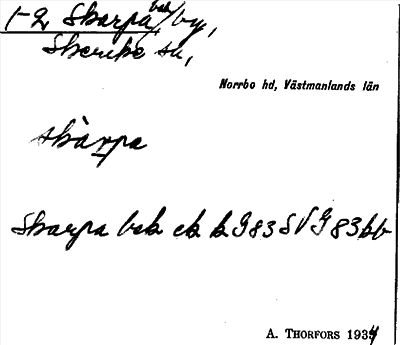 1-2 Skarpa bak, by,
Skerike sn,
Norrbo hd, Västmanlands län
skàrpa
Skarpa bak ek k G83 SV G83 bb
A. THORFORS 1934